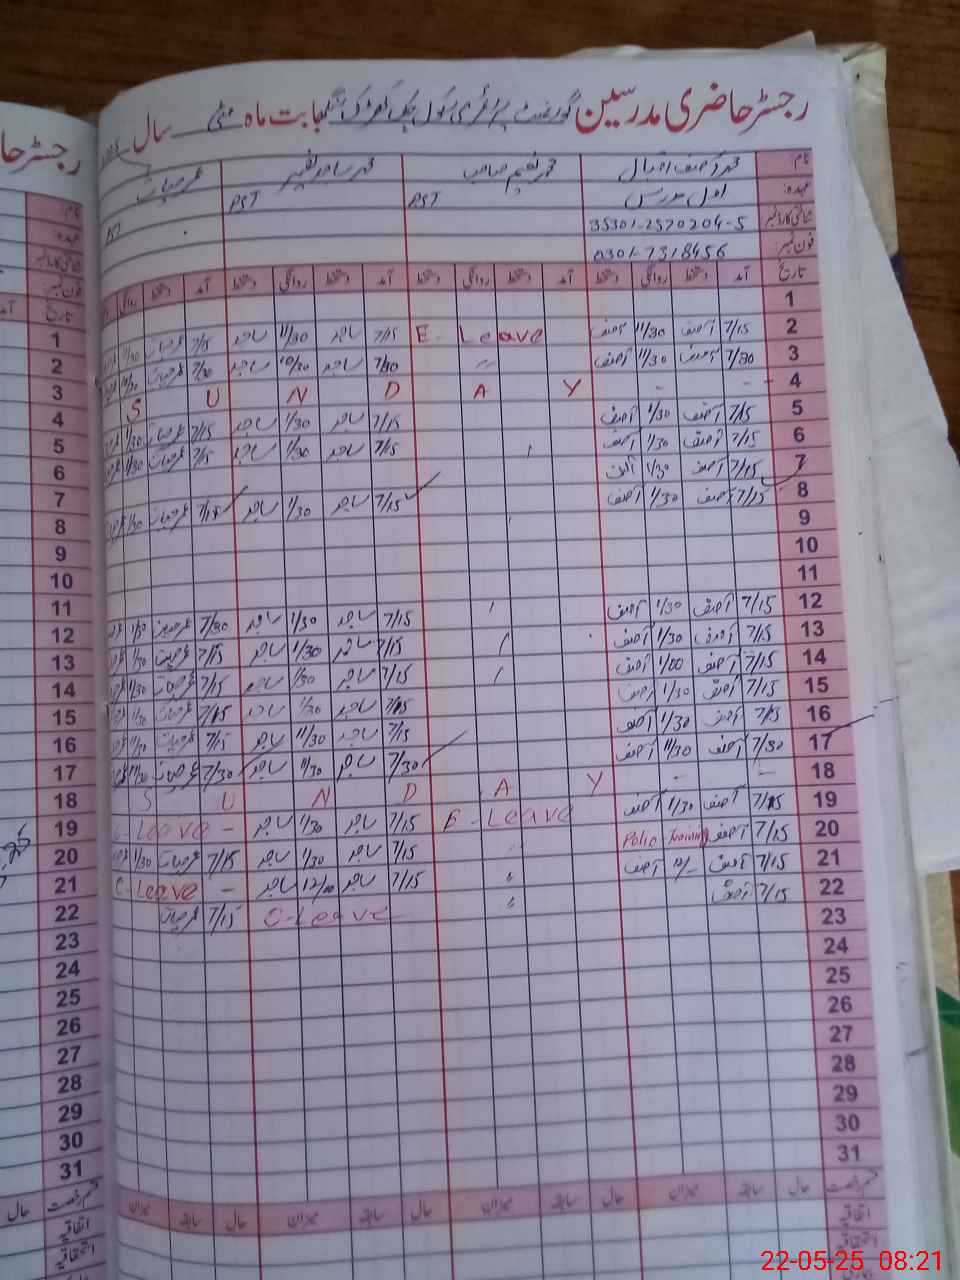 رجسٹر حاضری مدرسین گورنمنٹ پرائمری سکول بابت ماہ مئی سال
نام: محمد آصف اقبال محمد نعیم صاحب محمد ساجد نصیر عمر حیات
عہدہ: اول مدرس PST PST PST
شناختی کارڈ نمبر: 35301-2570204-5
فون نمبر: 0301-7318456
تاریخ آمد دستخط روانگی دستخط آمد دستخط روانگی دستخط آمد دستخط روانگی دستخط آمد دستخط روانگی
1
2 7/15 آصف 11/30 آصف E-Leave 7/15 ساجد 11/30 ساجد 7/15 عمرحیات 11/30
3 7/30 آصف 11/30 آصف " 7/30 ساجد 10/30 ساجد 7/30 عمرحیات 10/30
4 - - S U N D A Y
5 7/15 آصف 1/30 آصف 7/15 ساجد 1/30 ساجد 7/15 عمرحیات 1/30
6 7/15 آصف 1/30 آصف 7/15 ساجد 1/30 ساجد 7/15 عمرحیات 1/30
7 7/15 آصف 1/30 آصف
8 7/15 آصف 1/30 آصف 7/15 ساجد 1/30 ساجد 7/15 عمرحیات 1/30
9
10
11
12 7/15 آصف 1/30 آصف 7/15 ساجد 1/30 ساجد 7/30 عمرحیات 1/30
13 7/15 آصف 1/30 آصف 7/15 ساجد 1/30 ساجد 7/15 عمرحیات 1/30
14 7/15 آصف 1/00 آصف 7/15 ساجد 1/30 ساجد 7/15 عمرحیات 1/30
15 7/15 آصف 1/30 آصف 7/15 ساجد 1/30 ساجد 7/15 عمرحیات 1/30
16 7/15 آصف 11/30 آصف 7/15 ساجد 11/30 ساجد 7/15 عمرحیات 11/30
17 7/30 آصف 11/30 آصف 7/30 ساجد 11/30 ساجد 7/30 عمرحیات 11/30
18 - - S U N D A Y
19 7/15 آصف 1/30 آصف E-Leave 7/15 ساجد 1/30 ساجد C-Leave -
20 7/15 آصف Polio Training 7/15 ساجد 1/30 ساجد 7/15 عمرحیات 1/30
21 7/15 آصف 12/- آصف 7/15 ساجد ساجد C-Leave -
22 7/15 آصف C-Leave 7/15 عمرحیات
23
24
25
26
27
28
29
30
31
قسم رخصت حال سابقہ میزان حال سابقہ میزان حال سابقہ میزان حال سابقہ میزان
اتفاقیہ
استحقاقیہ
رجسٹر حا
نام:
عہدہ:
شناختی کارڈ نمبر:
فون نمبر:
تاریخ
1
2
3
4
5
6
7
8
9
10
11
12
13
14
15
16
17
18
19
20
21
22
23
24
25
26
27
28
29
30
31
قسم رخصت حال
اتفاقیہ
استحقاقیہ
22-05-25 08:21